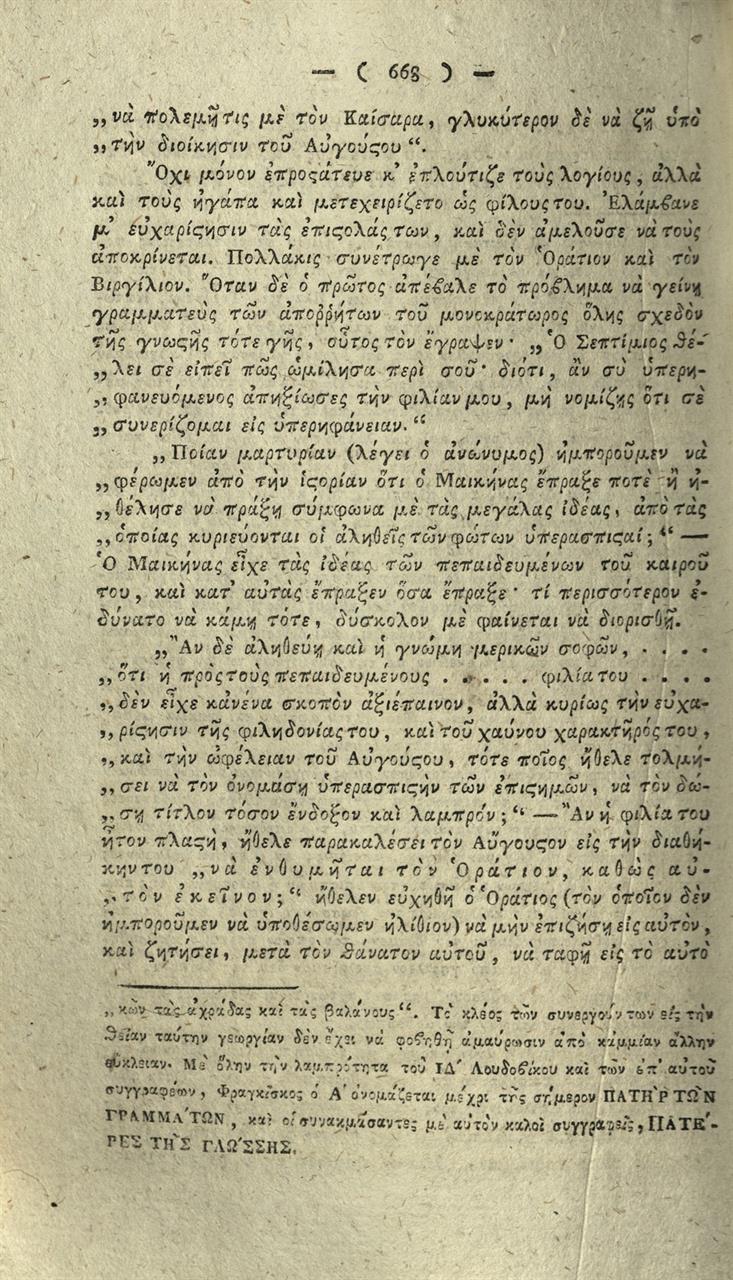 — ( 668 ) —
„ νὰ πολεμῇ τις μὲ τὸν Καίσαρα, γλυκύτερον δὲ νὰ ζῇ ὑπὸ
„ τὴν διοίκησιν τοῦ Αὐγούϛου “.
Ὄχι μόνον ἐπροϛάτευε κ’ ἐπλούτιζε τοὺς λογίους, ἀλλὰ
καὶ τοὺς ἠγάπα καὶ μετεχειρίζετο ὡς φίλους του. Ἐλάμβανε
μ’ εὐχαρίϛησιν τὰς ἐπιϛολάς των, καὶ δὲν ἀμελοῦσε νὰ τοὺς
ἀποκρίνεται. Πολλάκις συνέτρωγε μὲ τὸν Ὁράτιον καὶ τὸν
Βιργίλιον. Ὅταν δὲ ὁ πρῶτος ἀπέβαλε τὸ πρόβλημα νὰ γείνῃ
γραμματεὺς τῶν ἀποῤῥήτων τοῦ μονοκράτωρος ὅλης σχεδὸν
τῆς γνωϛῆς τότε γῆς, οὗτος τὸν ἔγραψεν· „ Ὁ Σεπτίμιος θέ-
„ λει σὲ εἰπεῖ πῶς ὡμίλησα περὶ σοῦ· διότι, ἂν σὺ ὑπερη-
„ φανευόμενος ἀπηξίωσες τὴν φιλίαν μου, μὴ νομίζῃς ὅτι σὲ
„ συνερίζομαι εἰς ὑπερηφάνειαν. “
„ Ποίαν μαρτυρίαν (λέγει ὁ ἀνώνυμος) ἠμποροῦμεν νὰ
„ φέρωμεν ἀπὸ τὴν ἱϛορίαν ὅτι ὁ Μαικήνας ἔπραξε ποτὲ ἢ ἠ-
„ θέλησε νὰ πράξῃ σύμφωνα μὲ τὰς μεγάλας ἰδέας, ἀπὸ τὰς
„ ὁποίας κυριεύονται οἱ ἀληθεῖς τῶν φώτων ὑπερασπιϛαί; “ —
Ὁ Μαικήνας εἶχε τὰς ἰδέας τῶν πεπαιδευμένων τοῦ καιροῦ
του, καὶ κατ’ αὐτὰς ἔπραξεν ὅσα ἔπραξε· τί περισσότερον ἐ-
δύνατο νὰ κάμῃ τότε, δύσκολον μὲ φαίνεται νὰ διορισθῇ.
„ Ἂν δὲ ἀληθεύῃ καὶ ἡ γνώμη μερικῶν σοφῶν, . . . .
„ ὅτι ἡ πρὸς τοὺς πεπαιδευμένους . . . . . φιλία του . . . .
„ δὲν εἶχε κἀνένα σκοπὸν ἀξιέπαινον, ἀλλὰ κυρίως τὴν εὐχα-
„ ρίϛησιν τῆς φιληδονίας του, καὶ τοῦ χαύνου χαρακτῆρός του,
„ καὶ τὴν ὠφέλειαν τοῦ Αὐγούϛου, τότε ποῖος ἤθελε τολμή-
„ σει νὰ τὸν ὀνομάσῃ ὑπερασπιϛὴν τῶν ἐπιϛημῶν, νὰ τὸν δώ-
„ σῃ τίτλον τόσον ἔνδοξον καὶ λαμπρόν; “ — Ἂν ἡ φιλία του
ἦτον πλαϛὴ, ἤθελε παρακαλέσει τὸν Αὔγουϛον εἰς τὴν διαθή-
κην του „ νὰ ἐνθυμῆται τὸν Ὁράτιον, καθὼς αὐ-
„ τὸν ἐκεῖνον; “ ἤθελεν εὐχηθῆ ὁ Ὁράτιος (τὸν ὁποῖον δὲν
ἠμποροῦμεν νὰ ὑποθέσωμεν ἠλίθιον) νὰ μὴν ἐπιζήσῃ εἰς αὐτὸν,
καὶ ζητήσει, μετὰ τὸν θάνατον αὐτοῦ, νὰ ταφῇ εἰς τὸ αὐτὸ
„ κῶν τὰς ἀχράδας καὶ τὰς βαλάνους “. Τὸ κλέος τῶν συνεργούντων εἰς τὴν
θείαν ταύτην γεωργίαν δὲν ἔχει νὰ φοβηθῇ ἀμαύρωσιν ἀπὸ κἀμμίαν ἄλλην
εὔκλειαν. Μὲ ὅλην τὴν λαμπρότητα τοῦ ΙΔ´ Λουδοβίκου καὶ τῶν ἐπ’ αὐτοῦ
συγγραφέων, Φραγκίσκος ὁ Α´ ὀνομάζεται μέχρι τῆς σήμερον ΠΑΤΗ῀Ρ ΤΩ῀Ν
ΓΡΑΜΜΑ´ΤΩΝ, καὶ οἱ συνακμάσαντες μὲ αὐτὸν καλοὶ συγγραφεῖς, ΠΑΤΕ´-
ΡΕΣ ΤΗ῀Σ ΓΛΩ´ΣΣΗΣ.